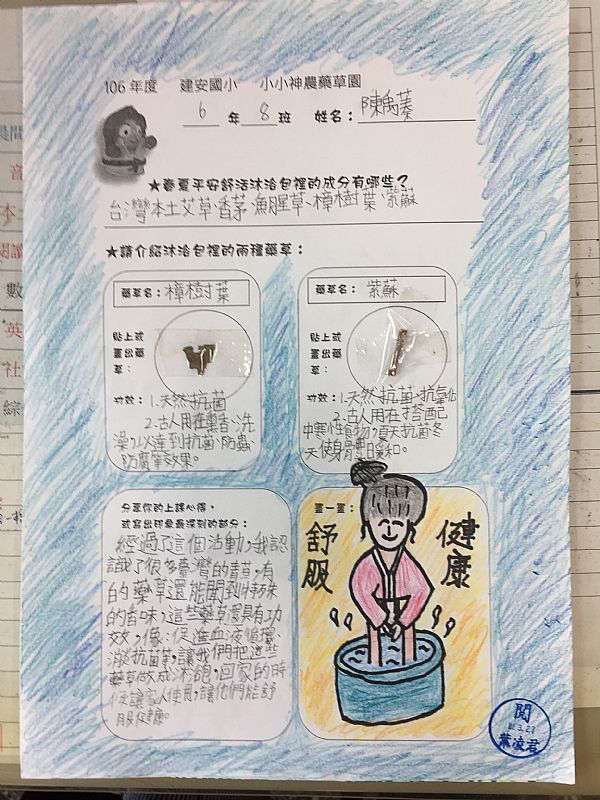 106 年度 建安國小 小小神農藥草園
6 年 8 班 姓名：陳禹蓁
★春夏平安舒活沐浴包裡的成分有哪些？
台灣本土艾草、香茅、魚腥草、樟樹葉、紫蘇
★請介紹沐浴包裡的兩種藥草：
藥草名：樟樹葉
貼上或
畫出藥
草：
功效：1.天然抗菌
2.古人用在薰香、洗
澡，以達到抗菌、防蟲、
防腐等效果。
藥草名：紫蘇
貼上或
畫出藥
草：
功效：1.天然抗菌、抗氧化
2.古人用在搭配
中寒性食物，夏天抗菌冬
天使身體暖和。
分享你的上課心得，
或寫出印象最深刻的部分：
經過了這個活動，我認
識了很多臺灣的青草，有
的藥草還能聞到特殊
的香味，這些藥草還具有功
效，像：促進血液循環、
消炎抗菌等，讓我們把這些
藥草做成沐浴包，回家的時
候讓家人使用，讓他們能舒
服健康。
畫一畫：
舒服
健康
閱
葉凌君